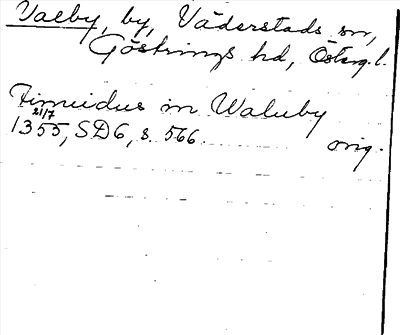 Valby, by, Väderstads sn,
Göstrings hd, Österg. l.
Finuidus in Waluby
21/7
1355, SD6, s. 566. orig.